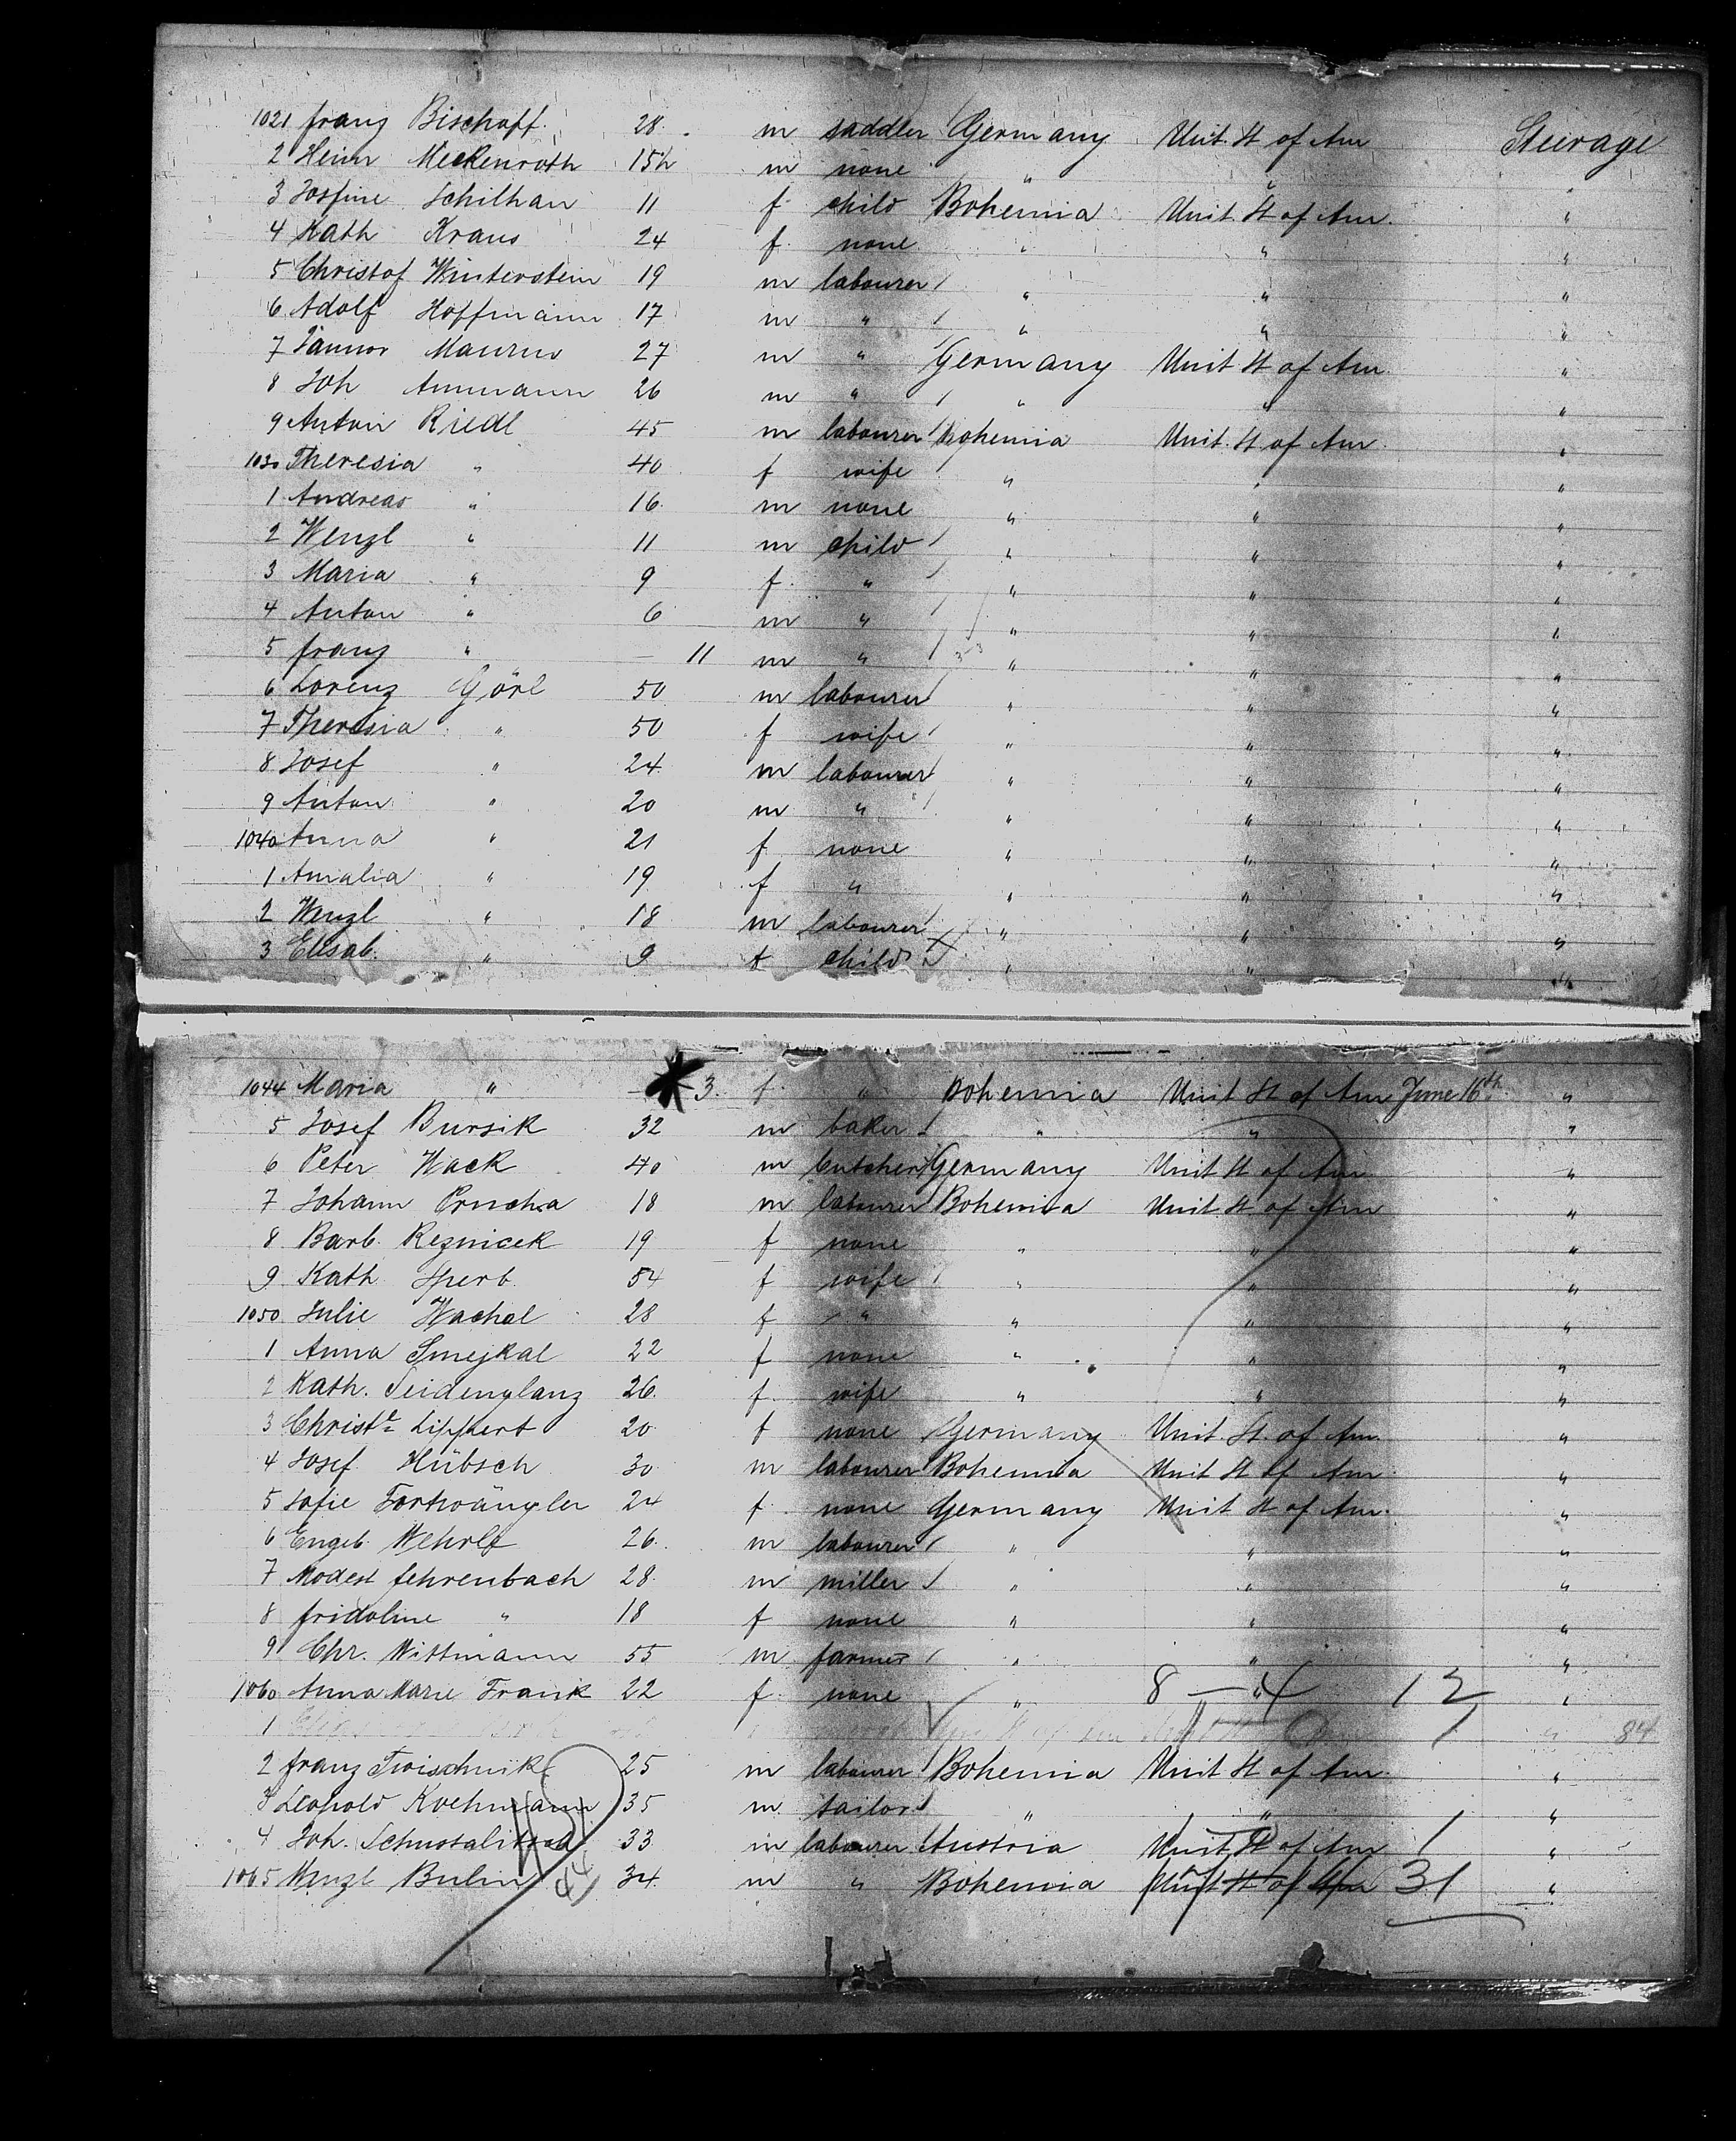 1021 Franz Bischoff. 28. m saddler Germany Unit. St of Am Steerage
2 Heinr Meckenroth 15 1/2 m none " " "
3 Josfine Schilhan 11 f child Bohemia Unit. St of Am. "
4 Kath Kraus 24 f. none " " "
5 Christof Winterstein 19 m labourer " " "
6 Adolf Hoffmann 17 m " " " "
7 Maurus 27 m " Germany Unit St of Am. "
8 Joh Ammann 26 m " " " "
9 Anton Riedl 45 m labourer Bohemia Unit. St of Am. "
1030 Theresia " 40 f wife " " "
1 Andreas " 16 m none " " "
2 Wenzl " 11 m child " " "
3 Maria " 9 f. " " " "
4 Anton " 6 m " " " "
5 Franz " — 11 m " " " "
6 Lorenz Görl 50 m labourer " " "
7 Theresia " 50 f wife " " "
8 Josef " 24 m labourer " " "
9 Anton " 20 m " " " "
1040 Anna " 21 f none " " "
1 Amalia " 19 f " " " "
2 Wenzl " 18 m labourer " " "
3 Elisab. " 9 f child " " "
1044 Maria " — 3. f. " Bohemia Unit St of Am June 16th "
5 Josef Bursik 32 m baker " " "
6 Peter Wack 40 m butcher Germany Unit St of Am "
7 Johann Prucha 18 m labourer Bohemia Unit. St. of Am "
8 Barb. Reznicek 19 f none " " "
9 Kath Sperb. 54 f wife " " "
1050 Julie Wachal 28 f " " " "
1 Anna Smejkal 22 f none " " "
2 Kath. Seidenglanz 26. f. wife " " "
3 Christe Lippert 20 f none Germany Unit. St. of Am. "
4 Josef Hübsch 30 m labourer Bohemia Unit St of Am. "
5 Sofie Fortwängler 24 f. none Germany Unit St of Am. "
6 Engeb. Wehrle 26. m labourer " " "
7 Modest Fehrenbach 28 m miller " " "
8 Fridoline " 18 f none " " "
9 Chr. Wittmann 55 m farmer " " "
1060 Anna Marie Frank 22 f. none " " 8 — 4 12 "
1 " 84
2 Franz 25 m labourer Bohemia Unit St of Am. "
3 Leopold 35 m tailor " " "
4 Joh. 33 m labourer Austria Unit. St of Am 1 "
1065 Wenzl Bulin 44 34 m " Bohemia Unit St of Am 31 "